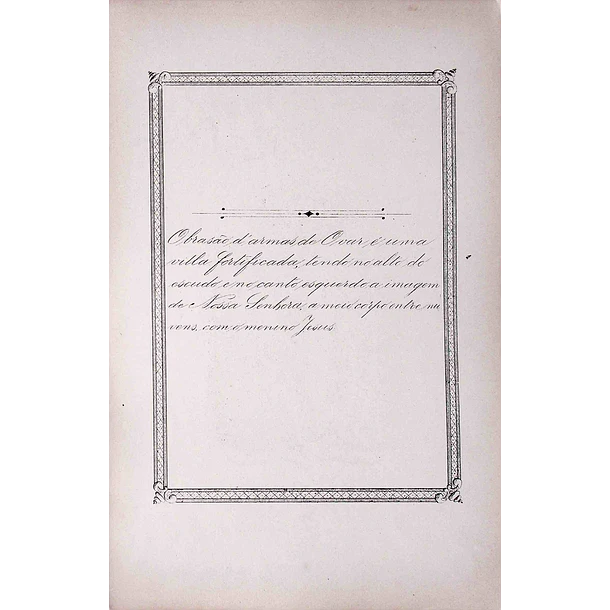 O brasão d'armas de Ovar, é uma
villa fortificada, tendo no alto do
escudo e no canto esquerdo a imagem
de Nossa Senhora, a meio corpo entre nu
vens, com o menino Jesus.